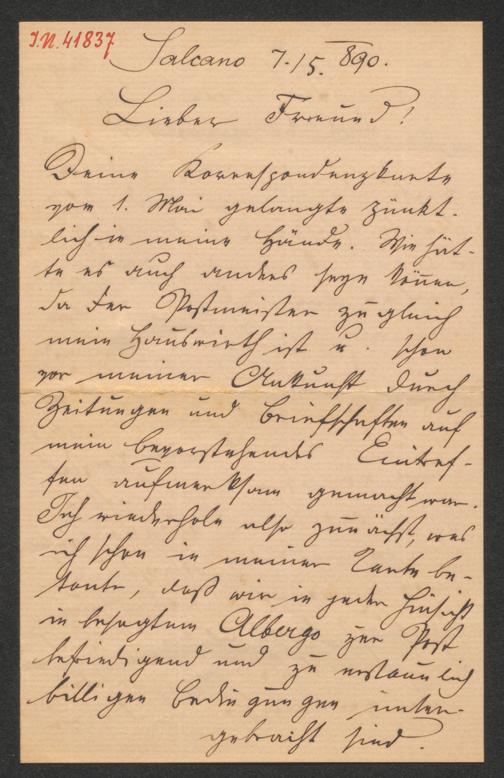 I.N. 41837
Salcano 7./5. 890.
Lieber Freund!
Deine Korrespondenzkarte
vom 1. Mai gelangte pünkt-
lich in meine Hände. Wie hät-
te es auch anders seyn können,
da der Postmeister zugleich
mein Hauswirth ist u. schon
vor meiner Ankunft durch
Zeitungen und Briefschaften auf
mein bevorstehendes Eintref-
fen aufmerksam gemacht war.
Ich wiederhole also zunächst, was
ich schon in meiner Karte be-
tonte, daß wir in jeder Hinsicht
in besagtem Albergo zur Post
befriedigend und zu erstaunlich
billigen Bedingungen unter-
gebracht sind.